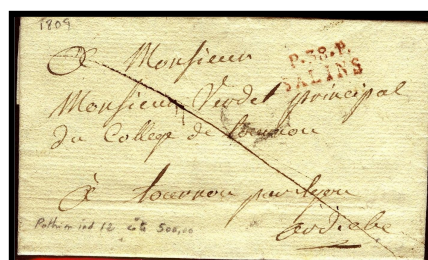 1809
P.38.P.
SALINS
à Monsieur
Monsieur Verdet principal
du College de tournon
à tournon par lyon
ardeche
Pothion ind 12 côte 500,00